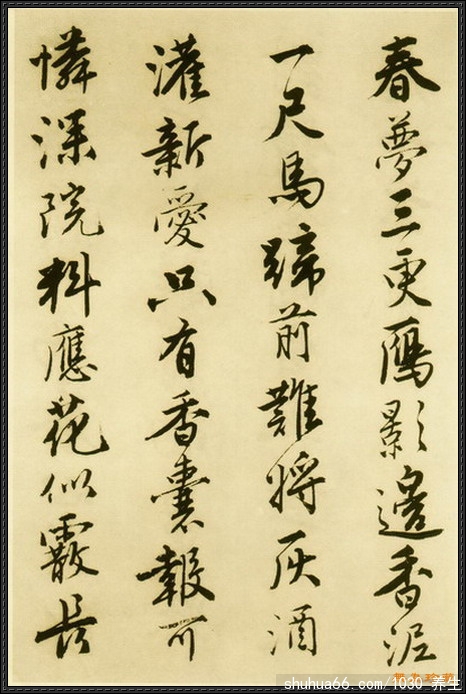 春夢三更鴈影邊香泥
一尺馬蹄前難將灰酒
灌新愛只有香囊報可
憐深院料應花似霰長
shuhua66.com/1030_养生